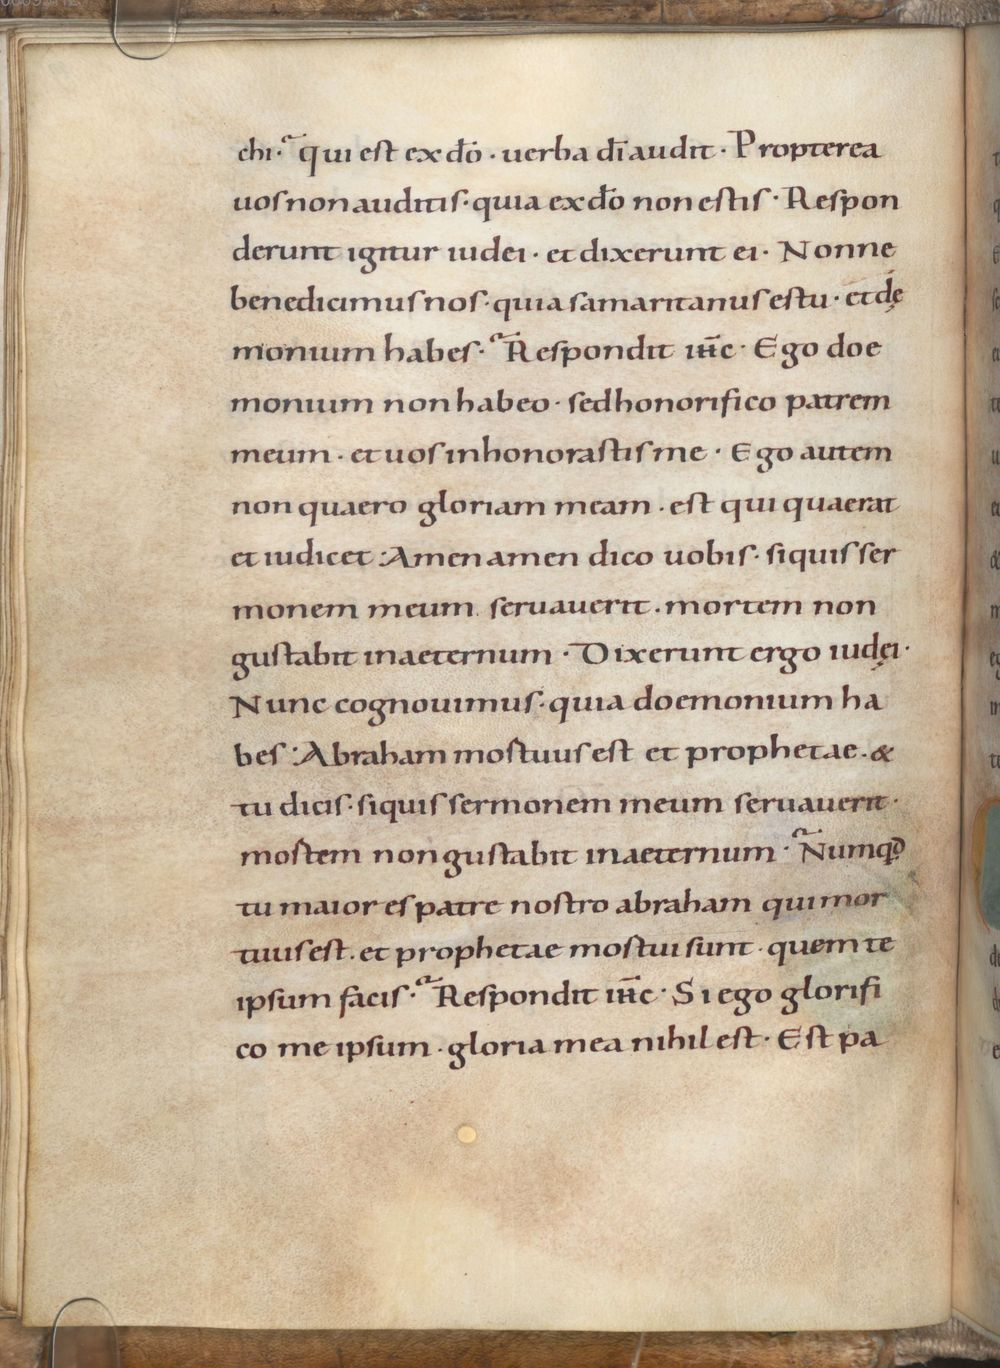 chi· qui est ex dō · uerba dī audit · Propterea
uos non auditis · quia ex dō non estis · Respon
derunt igitur iudei · et dixerunt ei · Nonne
benedicimus nos · quia samaritanus es tu · et dę
monium habes · Respondit iħc · Ego doe
monium non habeo · sed honorifico patrem
meum · et uos inhonorastis me · Ego autem
non quaero gloriam meam · est qui quaerat
et iudicet · Amen amen dico uobis · siquis ser
monem meum seruauerit · mortem non
gustabit in aeternum · Dixerunt ergo iudęi ·
Nunc cognouimus · quia doemonium ha
bes · Abraham mortuus est et prophetae · &
tu dicis · siquis sermonem meum seruauerit ·
mortem non gustabit in aeternum · Numqd
tu maior es patre nostro abraham qui mor
tuus est · et prophetae mortui sunt · quem te
ipsum facis · Respondit iħc · Si ego glorifi
co me ipsum · gloria mea nihil est · Est pa